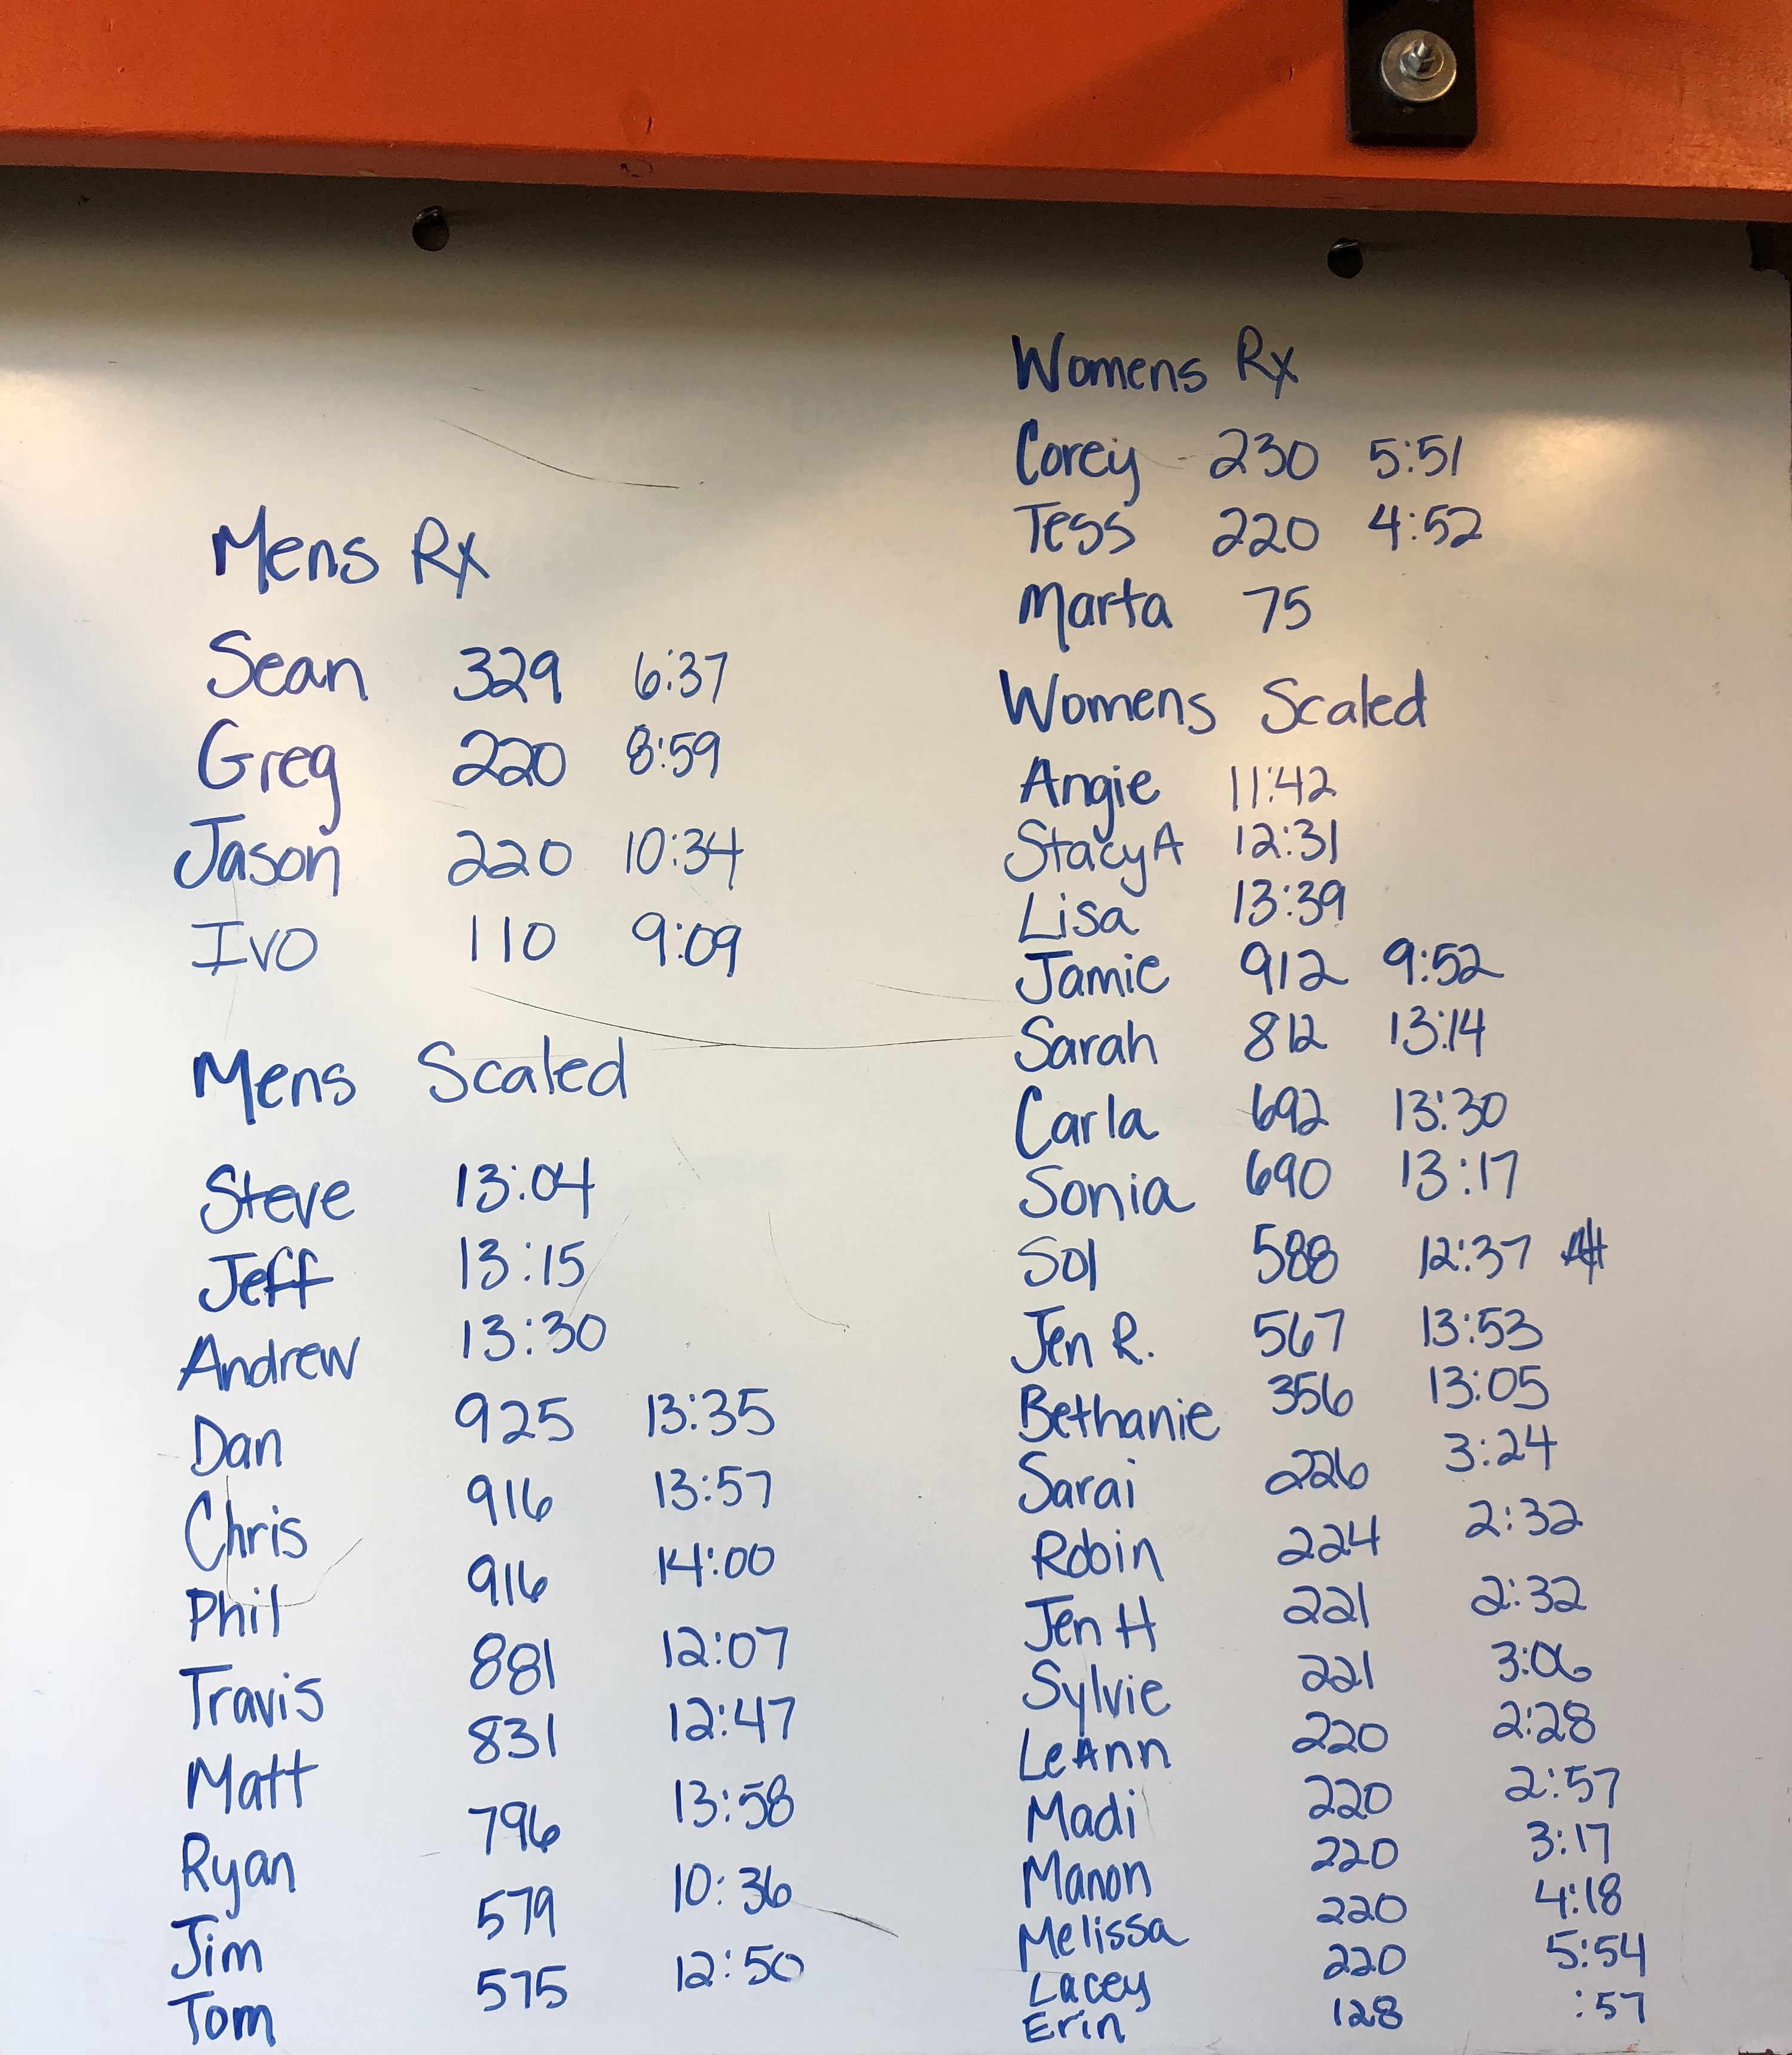 Mens Rx
Sean 329 6:37
Greg 220 8:59
Jason 220 10:34
Ivo 110 9:09
Mens Scaled
Steve 13:04
Jeff 13:15
Andrew 13:30
Dan 925 13:35
Chris 916 13:57
Phil 916 14:00
Travis 881 12:07
Matt 831 12:47
Ryan 796 13:58
Jim 579 10:36
Tom 575 12:50
Womens Rx
Corey 230 5:51
Tess 220 4:52
Marta 75
Womens Scaled
Angie 11:42
Stacy A 12:31
Lisa 13:39
Jamie 912 9:52
Sarah 812 13:14
Carla 692 13:30
Sonia 690 13:17
Sol 588 12:37
Jen R. 567 13:53
Bethanie 356 13:05
Sarai 226 3:24
Robin 224 2:32
Jen H 221 2:32
Sylvie 221 3:06
LeAnn 220 2:28
Madi 220 2:57
Manon 220 3:17
Melissa 220 4:18
Lacey 220 5:54
Erin 128 :57